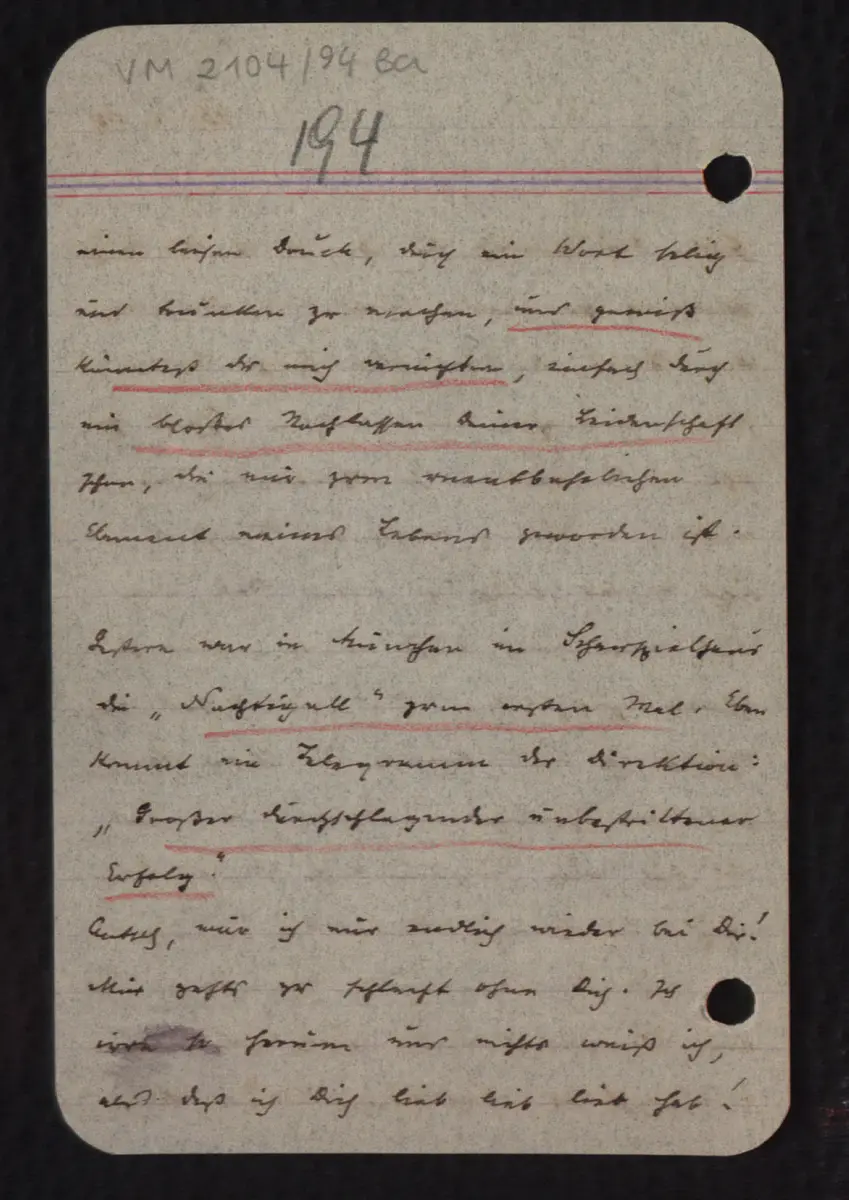 VM 2104/94 Ba
194
einen leisen Druck, durch ein Wort selig
und trunken zu machen, und gewiß
könntest du mich vernichten, einfach durch
ein bloßes Nachlassen Deiner Leidenschaft
schon, die mir zum unentbehrlichen
Element meines Lebens geworden ist.
Gestern war in München im Schauspielhaus
die „Nachtigall“ zum ersten Mal. Eben
kommt ein Telegramm der Direktion:
„Großer durchschlagender unbestrittener
Erfolg.“
wär ich nur endlich wieder bei Dir!
Mir gehts zu schlecht ohne Dich. Ich
irre so herum und nichts weiß ich,
als daß ich Dich lieb lieb lieb hab!